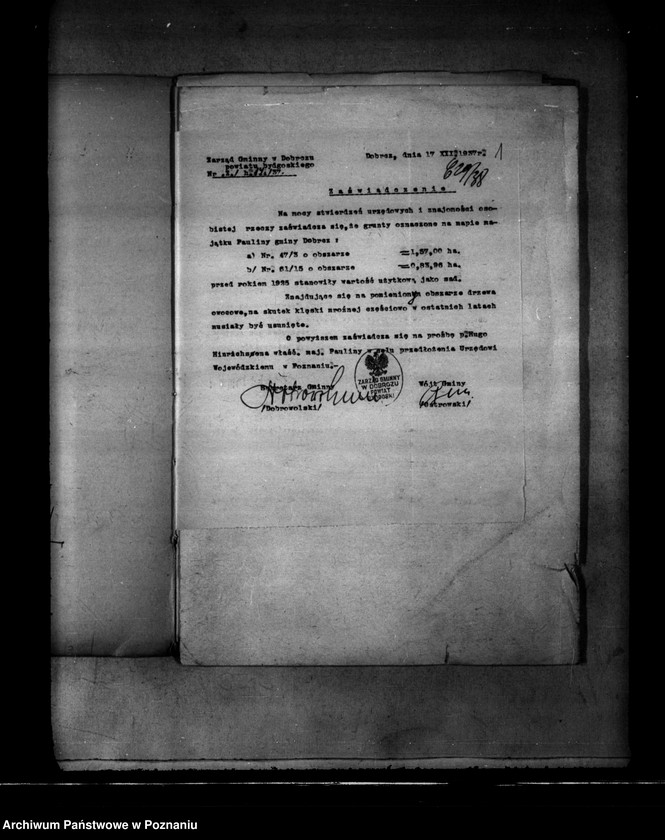 Zarząd Gminny w Dobrczu
powiatu bydgoskiego
Dobrcz, dnia 17 XII 1937r. 1
629/38
Zaświadczenie
Na mocy stwierdzeń urzędowych i znajomości oso-
bistej rzeczy zaświadcza się, że grunty oznaczone na mapie ma-
jątku Pauliny gminy Dobrcz :
a) Nr. 47/3 o obszarze = 1,57,00 ha.
b/ Nr. 61/15 o obszarze = 0,83,96 ha.
przed rokiem 1925 stanowiły wartość użytkową jako sad.
Znajdujące się na pomienionym obszarze drzewa
owocowe, na skutek klęski mroźnej częściowo w ostatnich latach
musiały być usunięte.
O powyższem zaświadcza się na prośbę p. Hugo
Hinrichsena właśc. maj. Pauliny w celu przedłożenia Urzędowi
Wojewódzkiemu w Poznaniu.-
ZARZĄD GMINNY
W DOBRCZU
POWIAT
Gminny
Wójt Gminy
/Dobrowolski/
/Ostrowski/
Archiwum Państwowe w Poznaniu